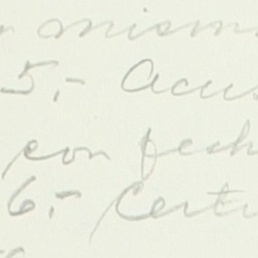 mism
5.- Acus
con fech
6.- Certi